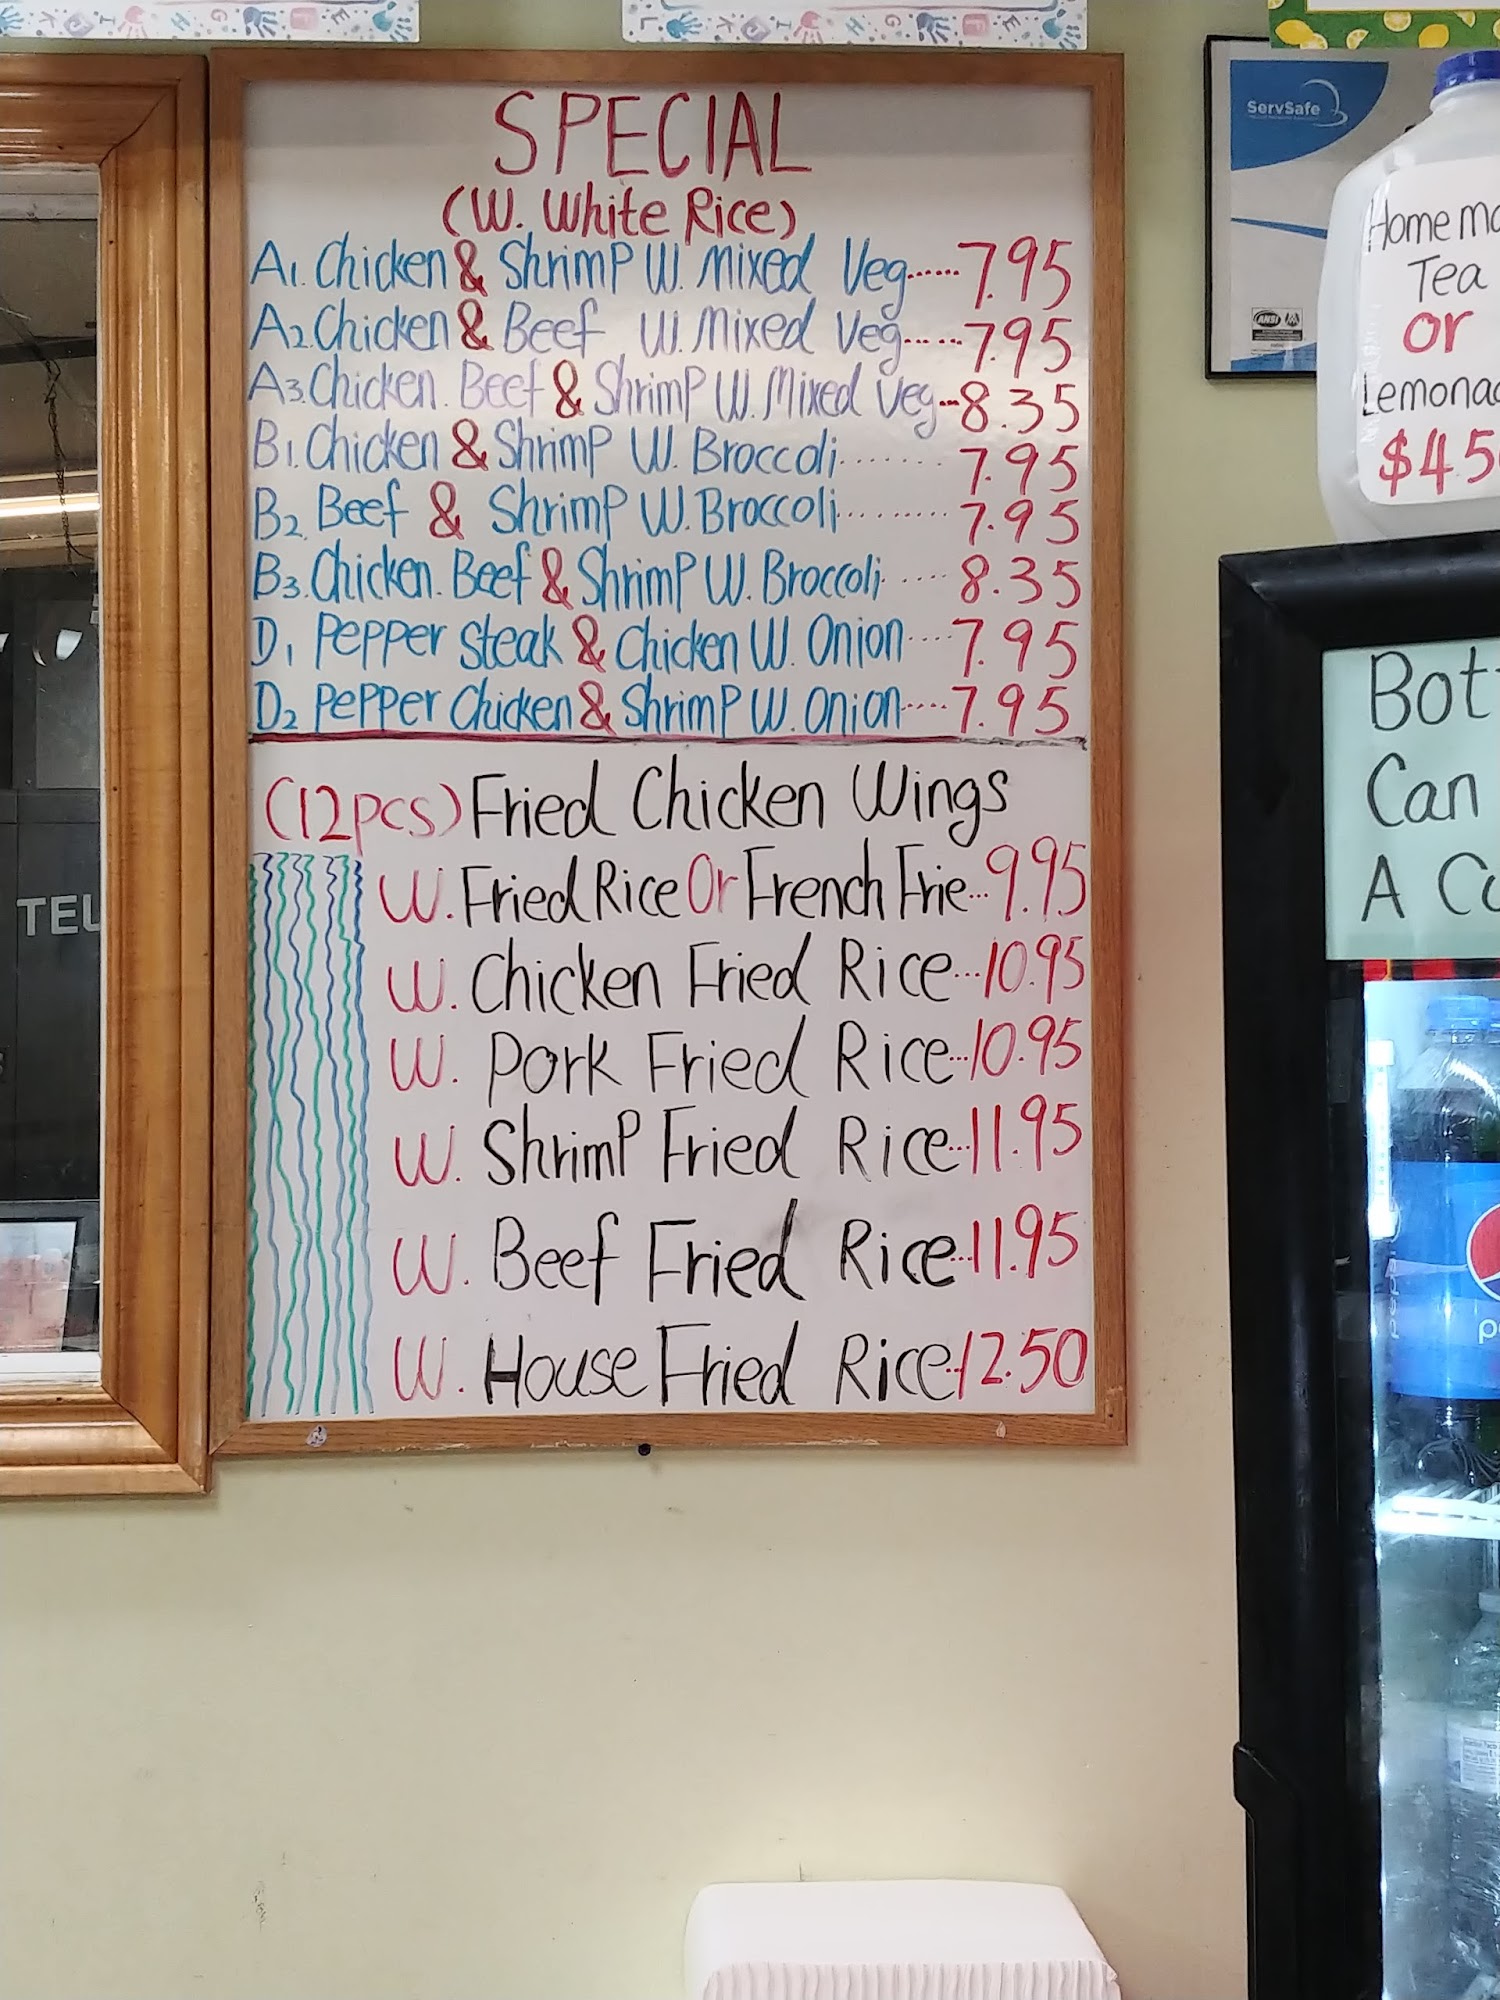 SPECIAL
(W. White Rice)
A1. Chicken & Shrimp W. Mixed Veg......7.95
A2. Chicken & Beef W. Mixed Veg.....7.95
A3. Chicken. Beef & Shrimp W. Mixed Veg...8.35
B1. Chicken & Shrimp W. Broccoli.......7.95
B2. Beef & Shrimp W. Broccoli.........7.95
B3. Chicken. Beef & Shrimp W. Broccoli.....8.35
D1 Pepper Steak & Chicken W. Onion....7.95
D2 Pepper Chicken & Shrimp W. Onion....7.95
(12pcs) Fried Chicken Wings
W. Fried Rice Or French Frie...9.95
W. Chicken Fried Rice...10.95
W. Pork Fried Rice...10.95
W. Shrimp Fried Rice...11.95
W. Beef Fried Rice...11.95
W. House Fried Rice..12.50
ServSafe
ANSI
Home
Tea
or
$4.5
Can
A
pepsi